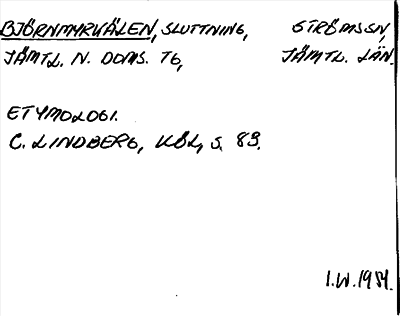 BJÖRNMYRKÄLEN, SLUTTNING, STRÖMSSN,
JÄMTL. N. DOMS. TG, JÄMTL. LÄN.
ETYMOLOGI.
C. LINDBERG, KÖL, S. 83.
I.W. 1981.